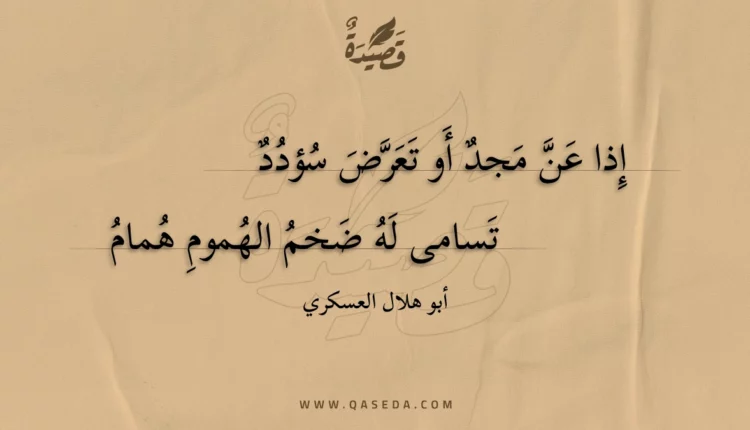 قَصِيدَةٌ
إِذا عَنَّ مَجدٌ أَو تَعَرَّضَ سُؤدُدٌ
تَسامى لَهُ ضَخمُ الهُمومِ هُمامُ
أبو هلال العسكري
WWW.QASEDA.COM